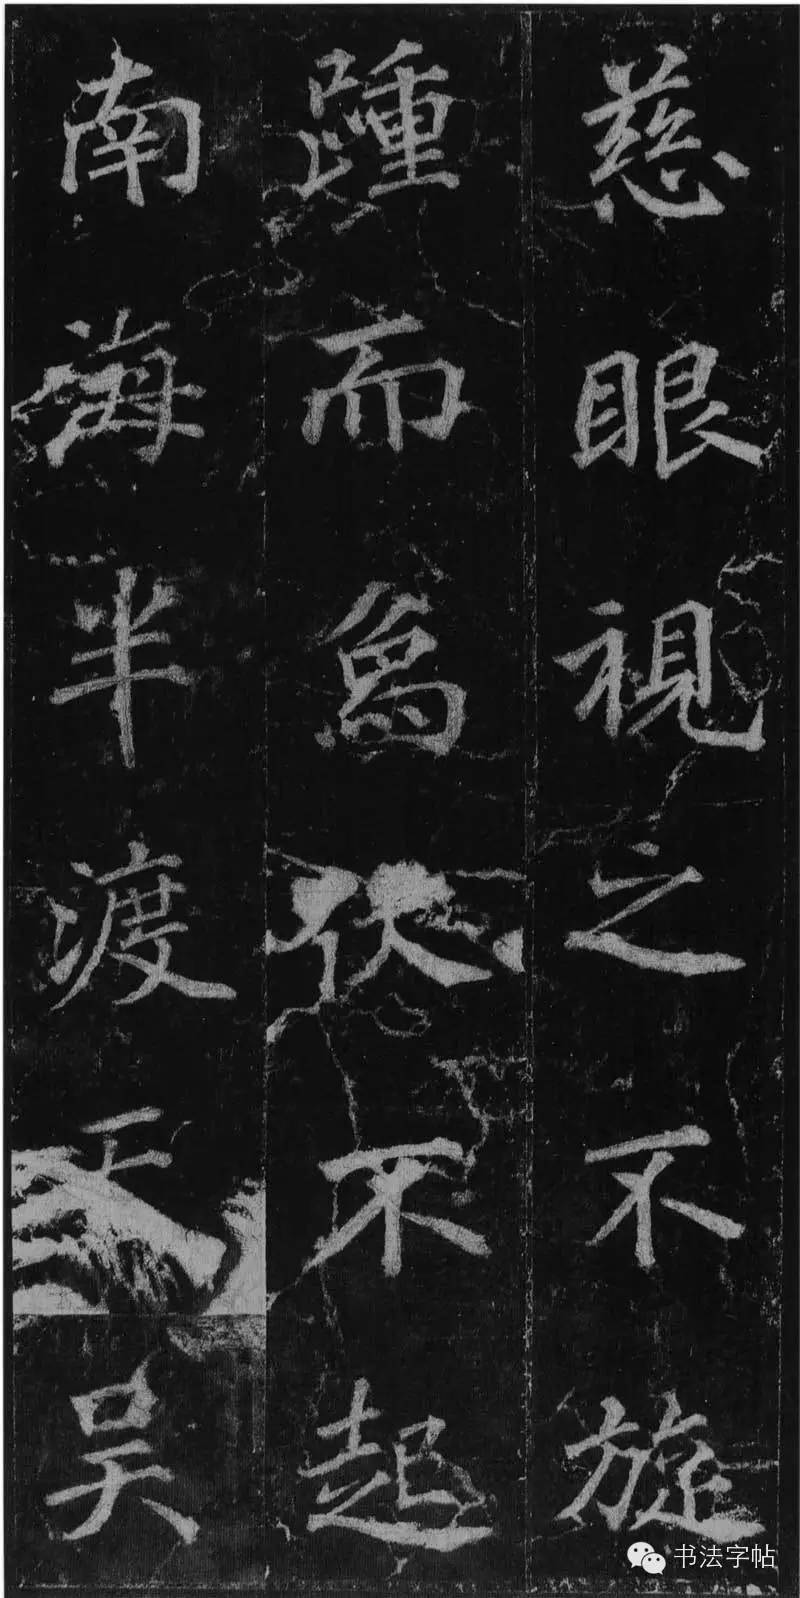 慈眼視之不旋
踵而為伏不起
南海半渡吳
书法字帖